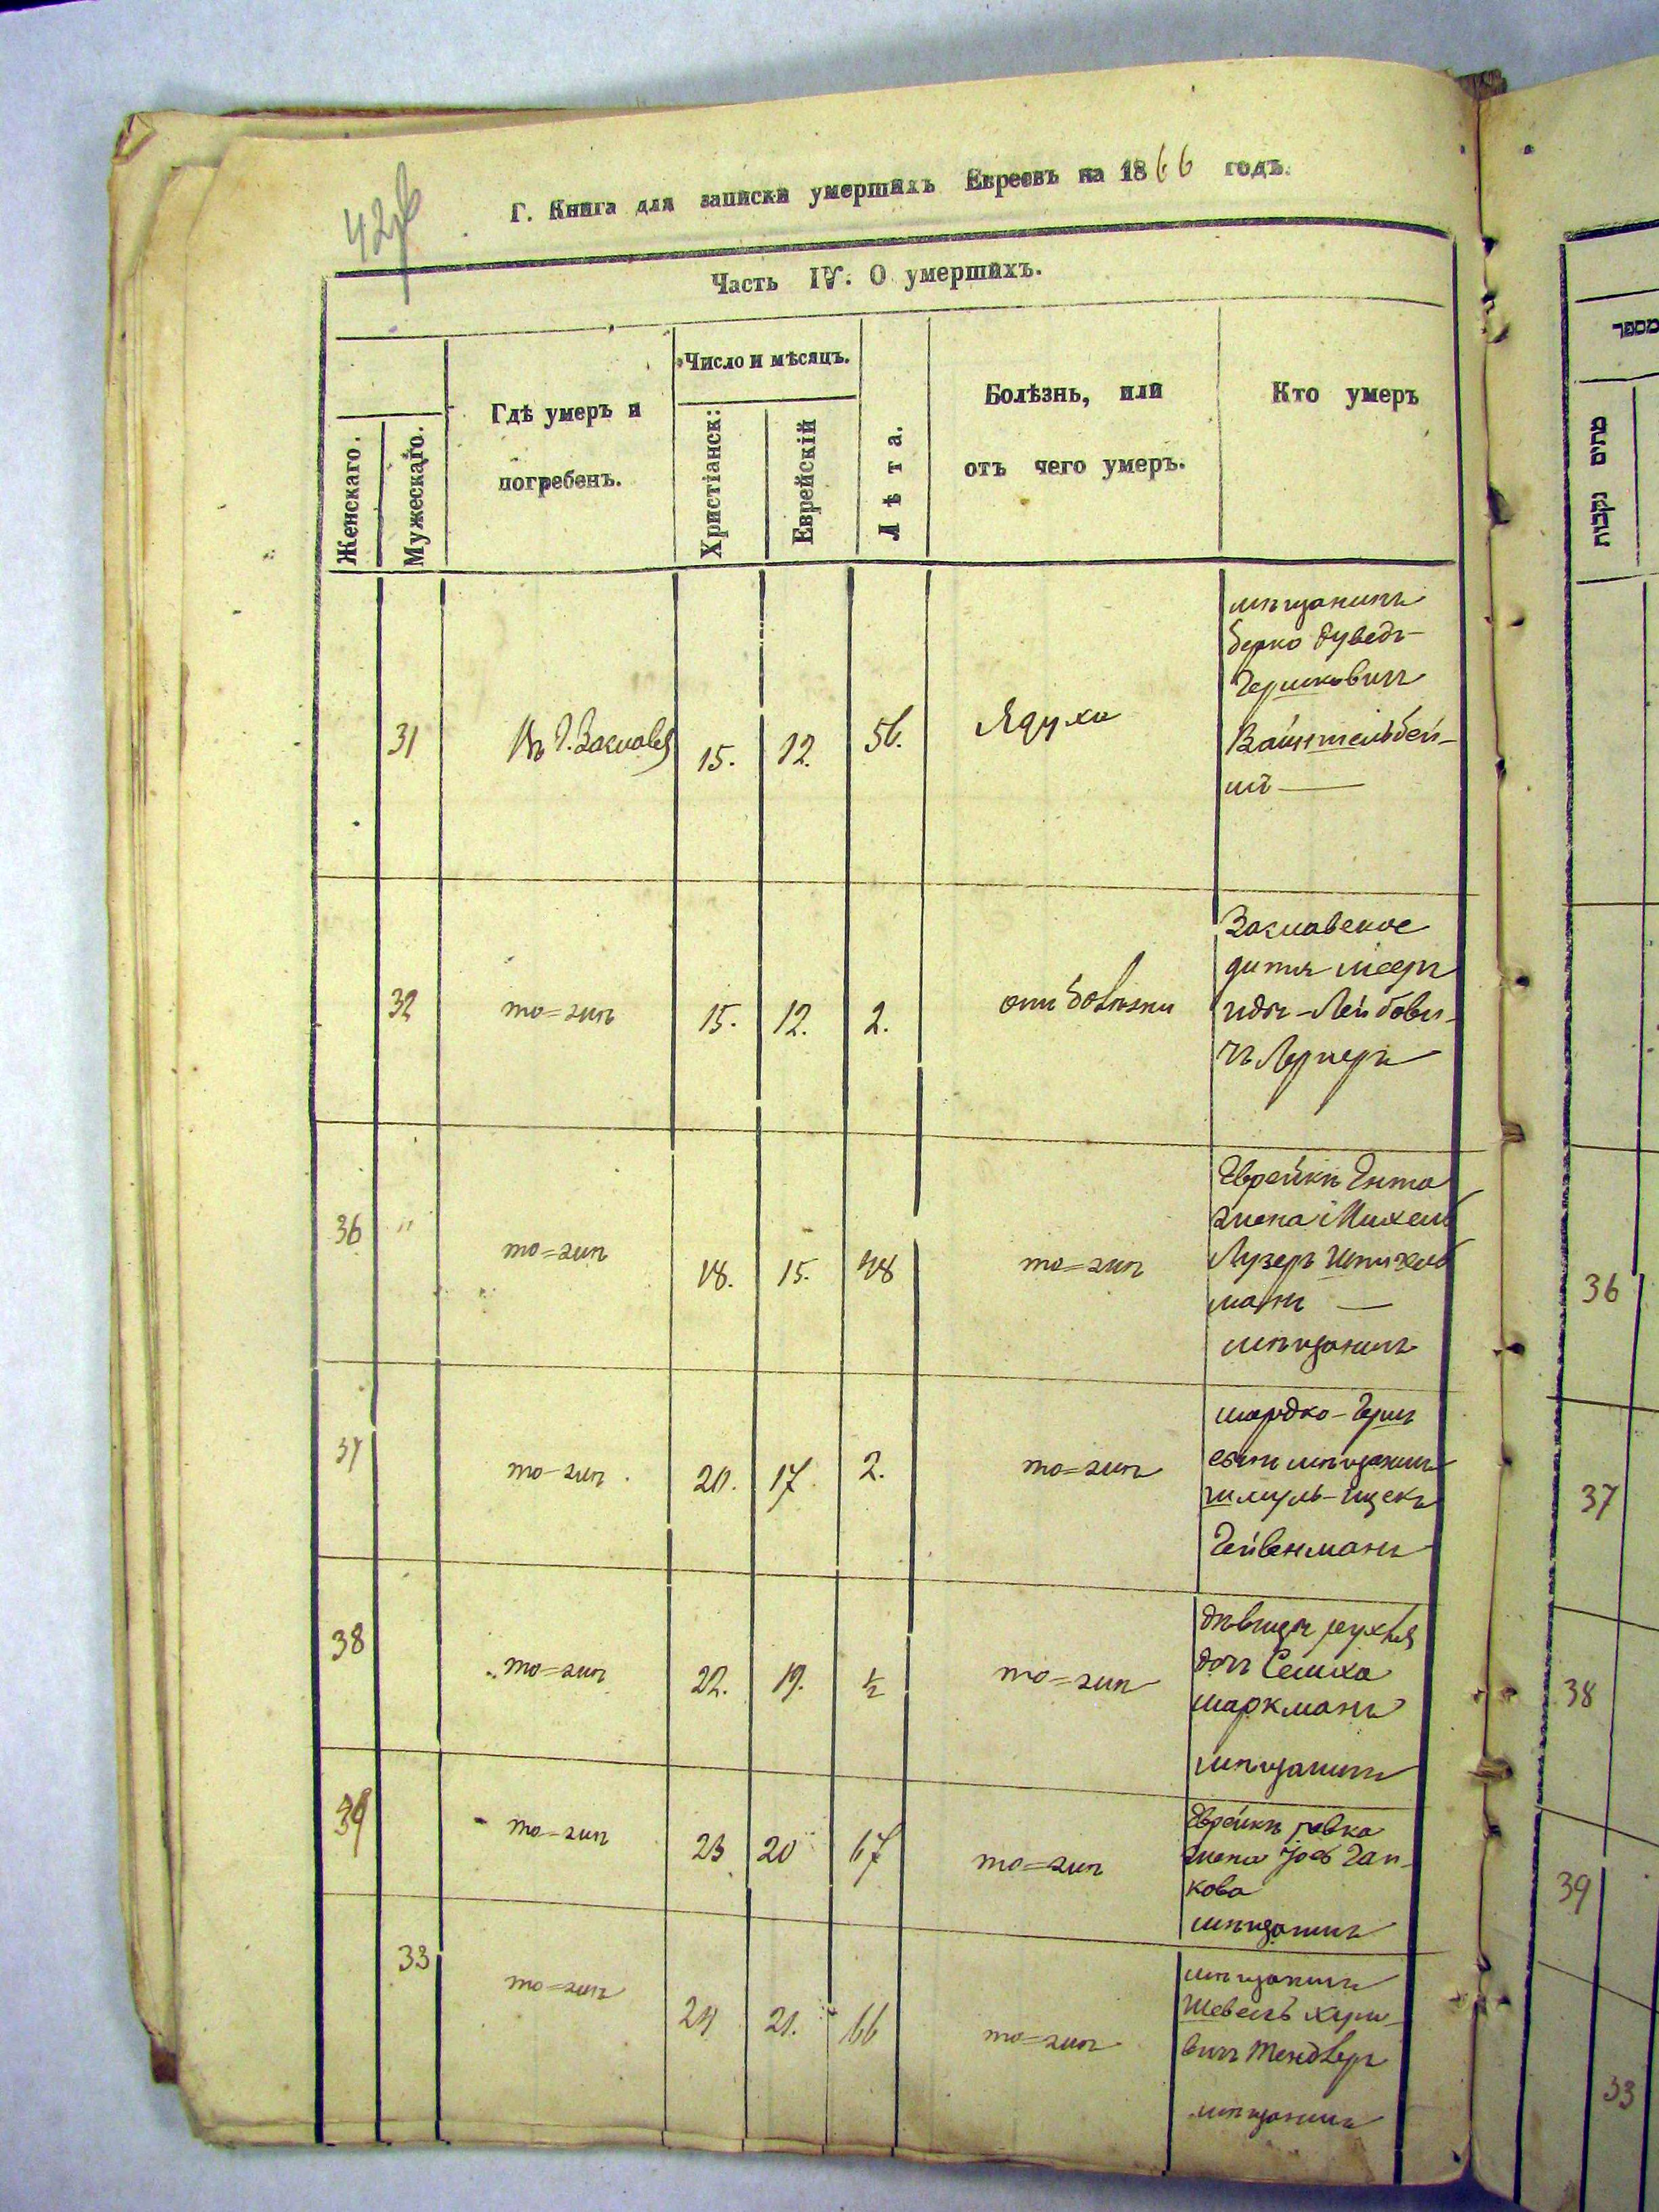 42об
Г. Книга для записки умершихъ Евреевъ на 1866 годъ.
Часть IV. О умершихъ.
Женскаго.
Мужескаго.
Гдѣ умеръ и
погребенъ.
Число и мѣсяцъ.
Христіанск:
Еврейскій
Лѣта.
Болѣзнь, или
отъ чего умеръ.
Кто умеръ
31
Въ Г. Заславѣ
15.
12.
56.
Ядуха
мѣщанинъ
Берко Дуведъ
Гершковичъ
Вайнтельбей-
мъ
32
то=жъ
15.
12.
2.
отъ болѣзни
Заславское
дитя Мееръ
Лейбови-
чъ Лернеръ
36
"
то=же
18.
15.
48
то=же
Еврейка Ента
жена Михель
Лузеръ
манъ
мѣщанинъ
37
то=же
20.
17.
2.
то=же
Мордко-Гершъ
сынъ мѣщанина
Шмуль-Ицекъ
Гейвенманъ
38
то=же
22.
19.
½
то=же
дѣвица Рухля
дочь Семха
Маркманъ
мѣщанинъ
39
то=же
23
20
67
то=же
Еврейка Ривка
жена
кова
мѣщанинъ
33
то=же
24
21.
66
то=же
мѣщанинъ
Шевель
вичъ Тендлеръ
мѣщанинъ
מספר
מתים נקבות
36
37
38
39
33